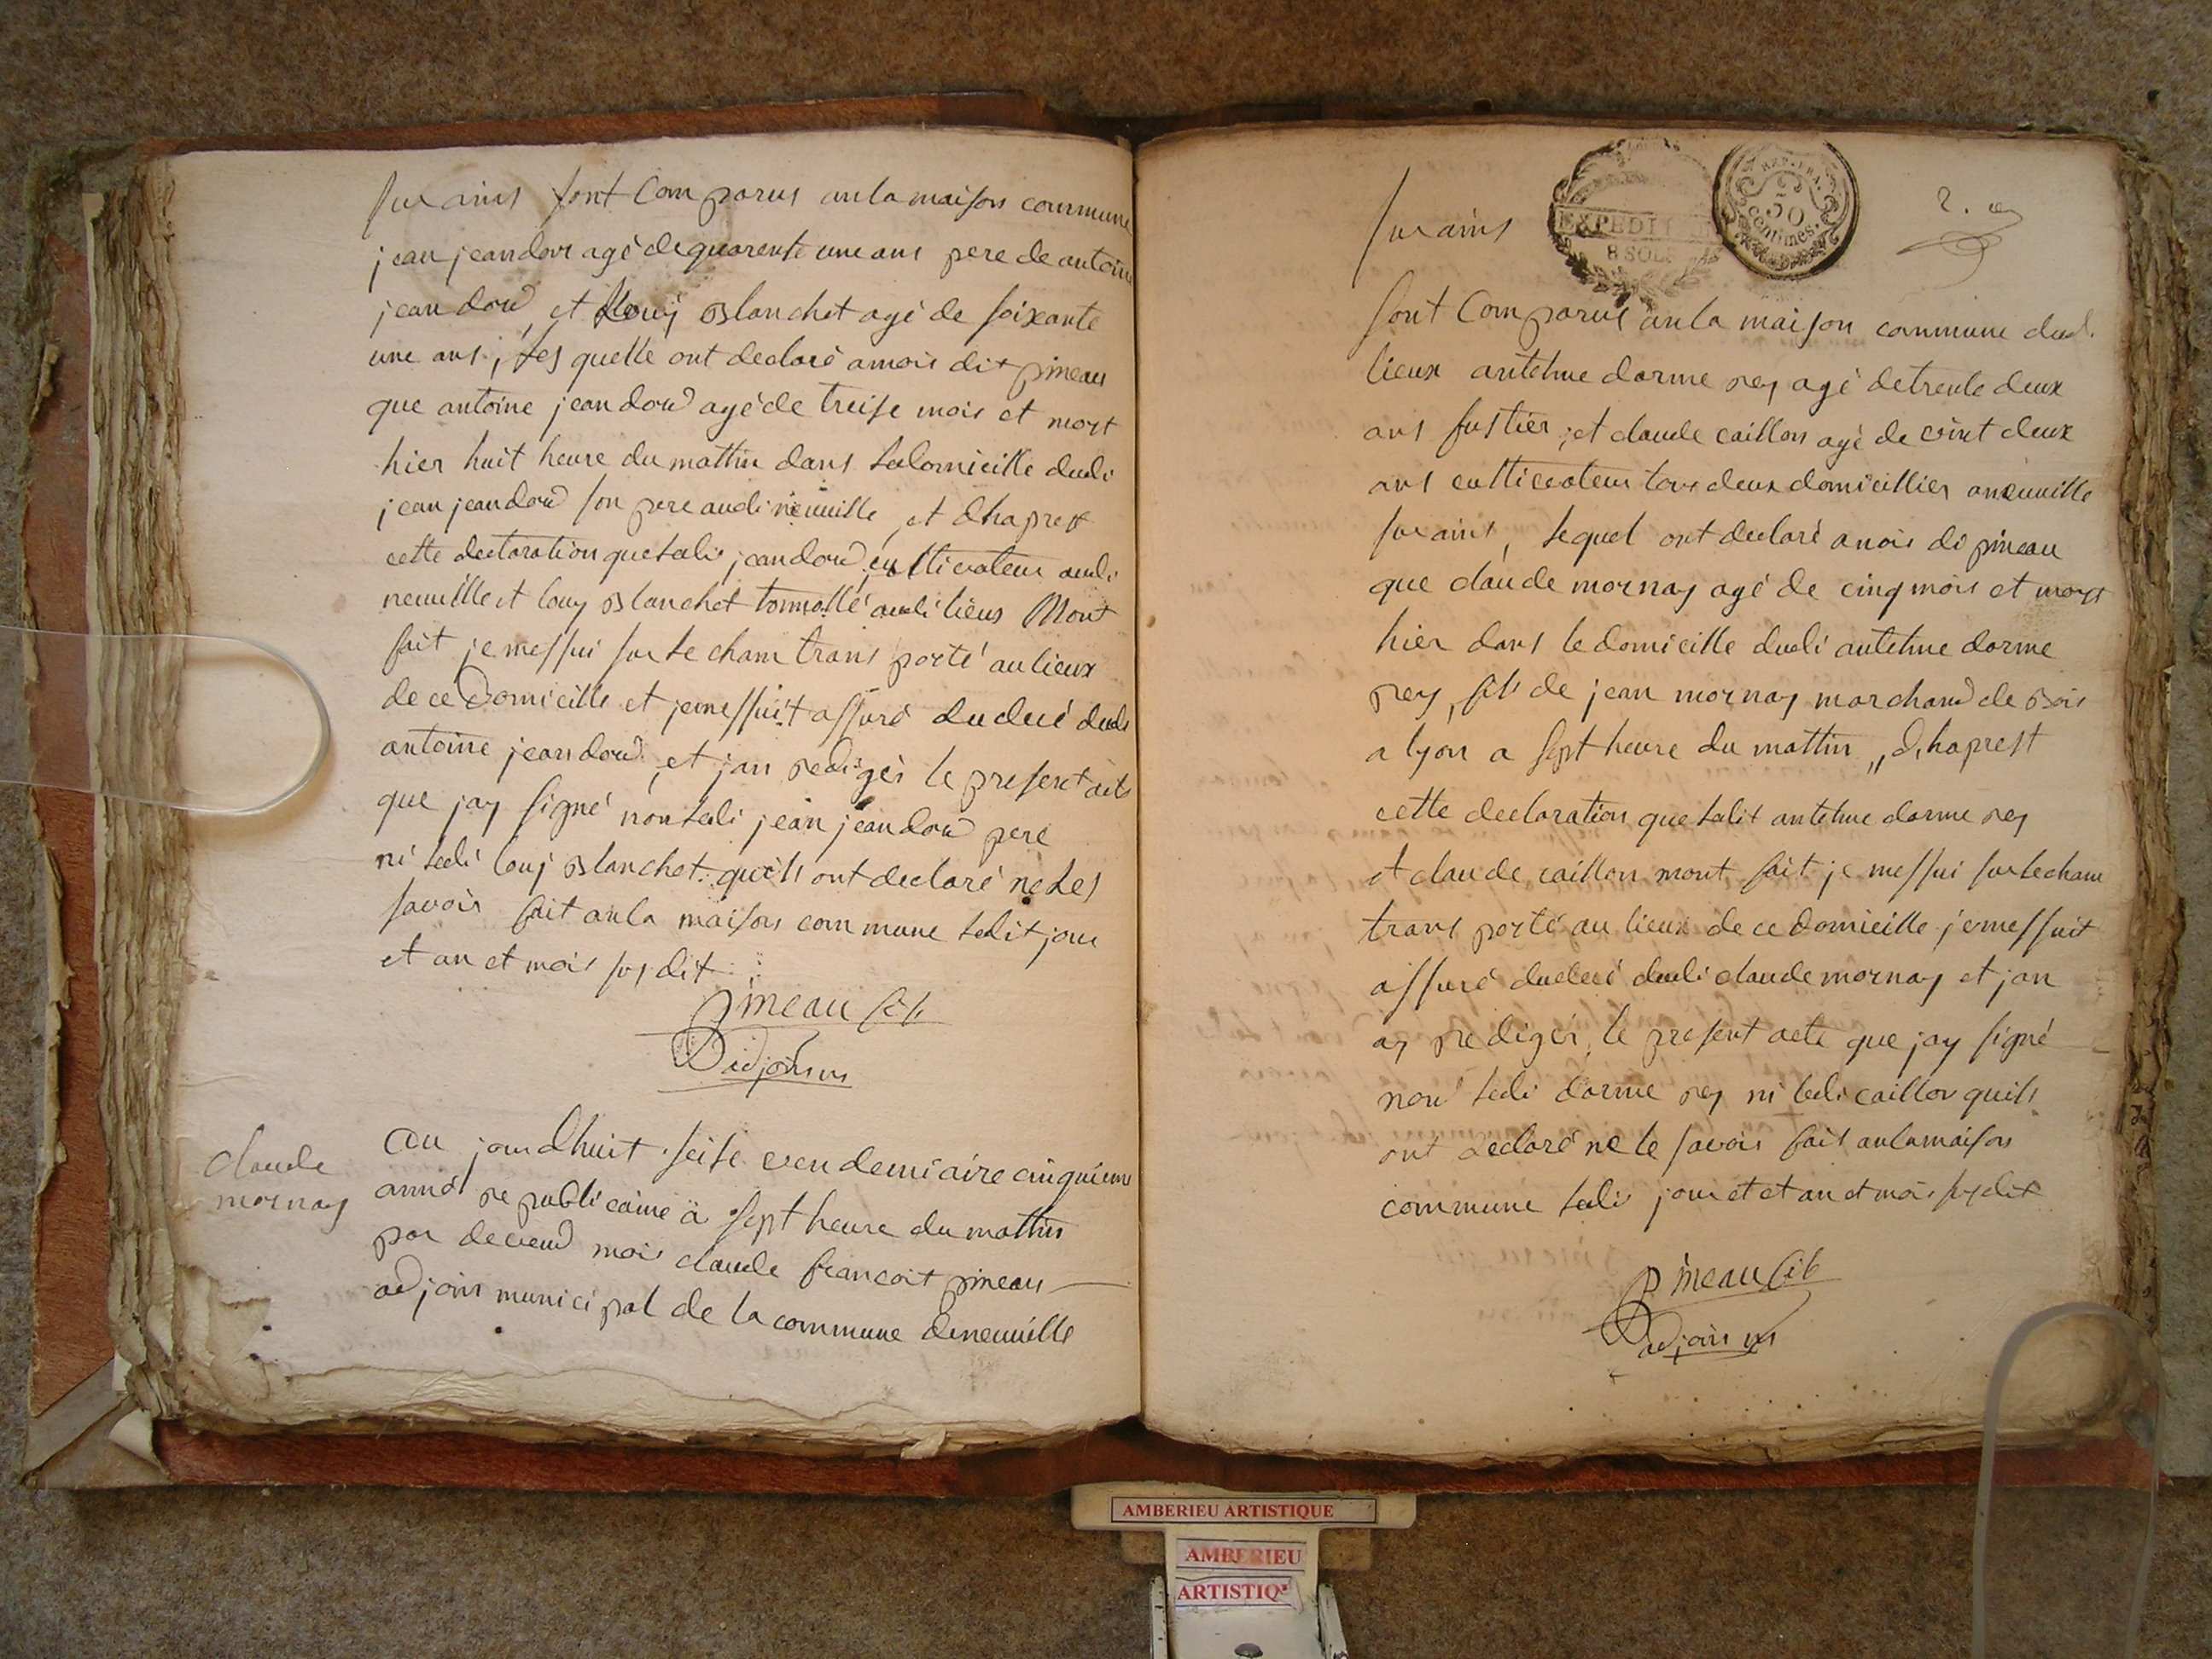 sur ains sont Comparus anla maison commune
jean jeandou agé de quarente une ans pere de antoine
jeandou, et Louy Blanchet agé de soixante
une ans, les quelle ont declaré a mois dit pineau
que antoine jeandou agé de treise mois et mort
hier huit heure du mattin dans ledomicille dudi
jean jeandou son pere audi neuuille, et dhaprest
cette declaration queledi jeandou cultivateur audi
neuuille et louy Blanchet audi lieus Mont
fait je messui sur le cham trans porté au lieux
de ce Domicille et jemessuit assuré du decé dudi
antoine jeandou, et jan redigés le present acte
que jay signé non ledi jean jeandou pere
ni ledi louj Blanchet quils ont declaré ne Les
savoir fait anla maison commune ledit jour
et an et mois susdit
Pineau fils
adjoins
claude
mornay
au jourdhuit seise vendemiaire cinquieme
anné republicaine a sept heure du mattin
par devend mois claude francoit pineau
adjoins municipal de la commune deneuuille
2.
REP. FRA.
50
centimes.
EXPEDI
8 SOLS
sur ains
sont Comparus anla maison commune dud.
lieux antelme dorme rey agé detrente deux
ans fustier, et claude caillon agé de vint deux
ans cultivateur tous deux domicillier aneuuille
sur ains, lequel ont declaré a mois di pineau
que claude mornay agé de cinq mois et mort
hier dans le domicille dudi antelme dorme
rey, fils de jean mornay marchand de Bois
a lyon a sept heure du mattin,, dhaprest
cette declaration queledit antelme dorme rey
et claude caillon mont fait je messui sur lecham
trans porté au lieux de ce domicille jemessuit
assuré dudecé dudi claude mornay et jan
ay redigér le present acte que jay signé
non ledi dorme rey ni ledi caillon quils
ont declaré ne le savoir fait anlamaison
commune ledi jour et et an et mois susdit
Pineau fils
adjoins
AMBERIEU ARTISTIQUE
AMBERIEU
ARTISTIQ